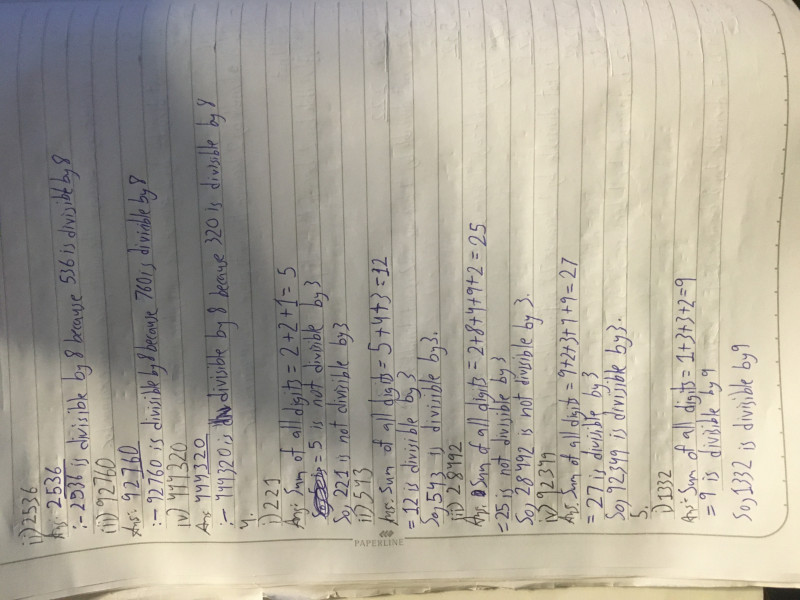 ii) 2536
Ans: 2536
:- 2536 is divisible by 8 because 536 is divisible by 8
iii) 92760
Ans: 92760
:- 92760 is divisible by 8 because 760 is divisible by 8
iv) 444320
Ans: 444320
:- 444320 is divisible by 8 because 320 is divisible by 8
4.
i) 221
Ans: Sum of all digits = 2+2+1= 5
= 5 is not divisible by 3
So, 221 is not divisible by 3
ii) 543
Ans: Sum of all digits = 5+4+3=12
= 12 is divisible by 3
So, 543 is divisible by 3.
iii) 28492
Ans: Sum of all digits = 2+8+4+9+2=25
=25 is not divisible by 3
So, 28492 is not divisible by 3.
iv) 92349
Ans: Sum of all digits = 9+2+3+4+9=27
= 27 is divisible by 3
So, 92349 is divisible by 3.
5.
i) 1332
Ans: Sum of all digits = 1+3+3+2=9
= 9 is divisible by 9
So, 1332 is divisible by 9
PAPERLINE